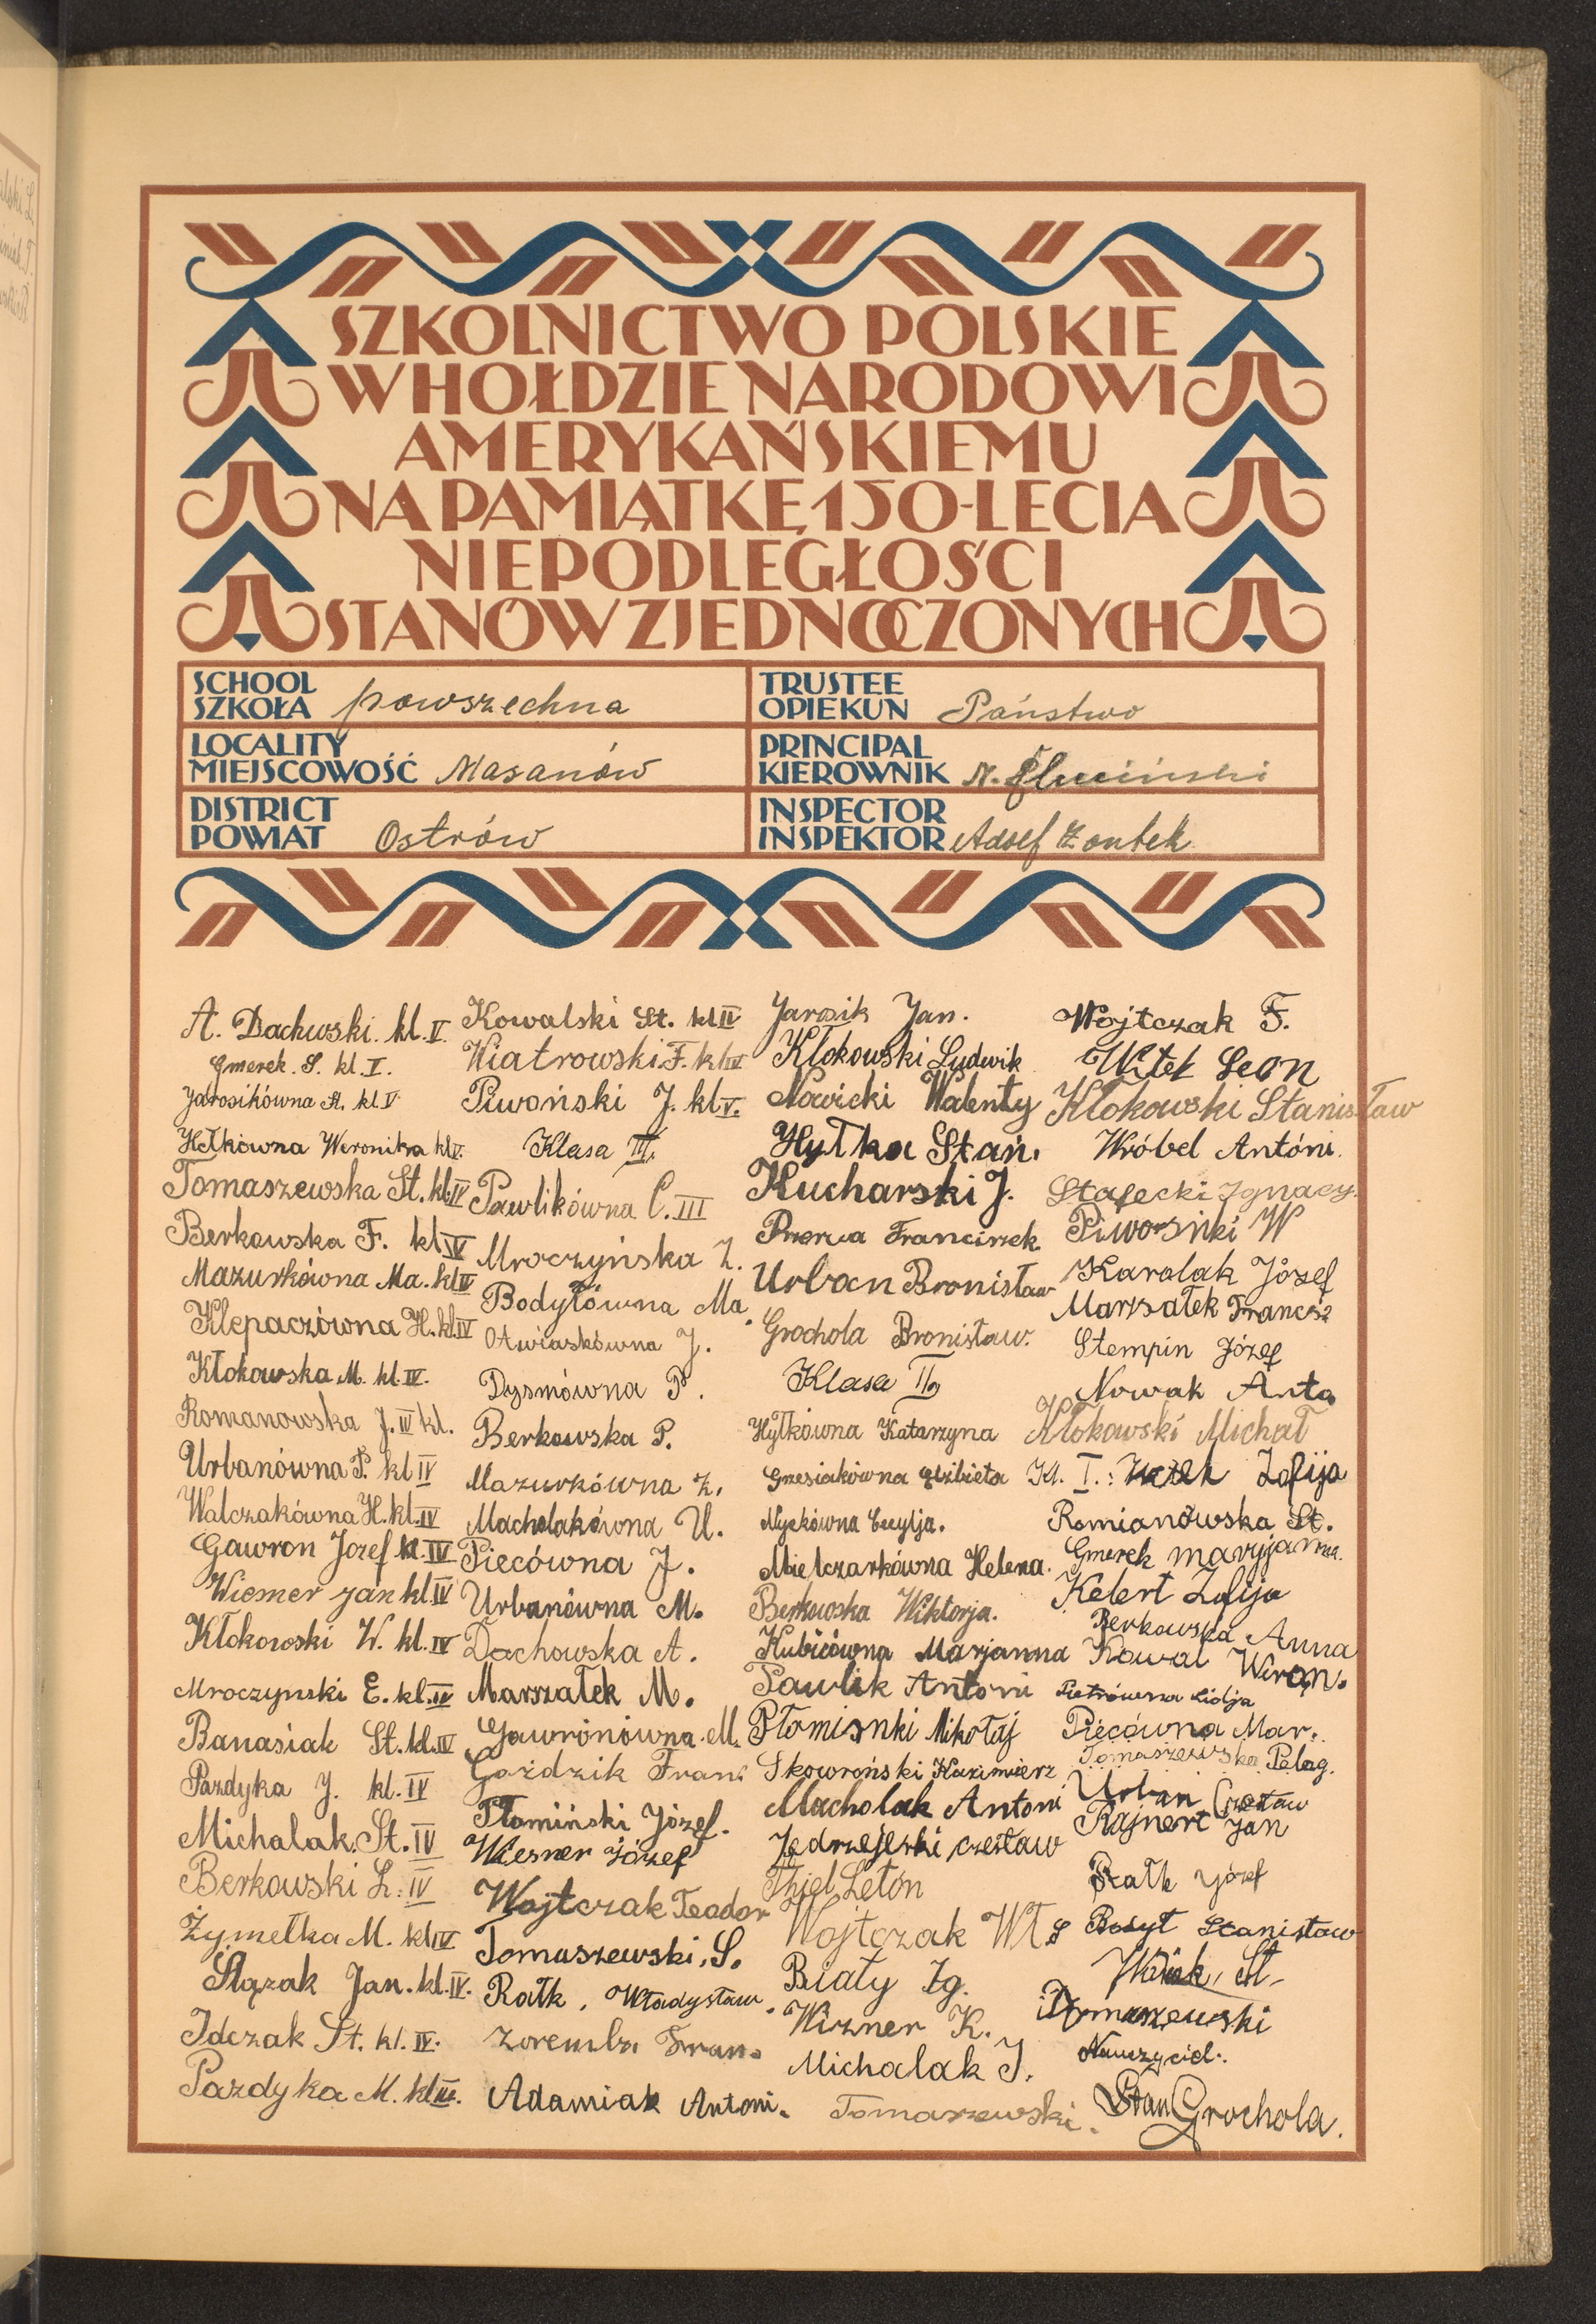 SZKOLNICTWO POLSKIE
W HOŁDZIE NARODOWI
AMERYKAŃSKIEMU
NA PAMIĄTKĘ 150-LECIA
NIEPODLEGŁOŚCI
STANÓW ZJEDNOCZONYCH
SCHOOL
SZKOŁA powszechna
TRUSTEE
OPIEKUN Państwo
LOCALITY
MIEJSCOWOŚĆ Masanów
PRINCIPAL
KIEROWNIK N.
DISTRICT
POWIAT Ostrów
INSPECTOR
INSPEKTOR Zontek
A. Dachwski. kl. V.
Gmerek. S. kl. I.
Jarosikówna St. kl. V
Hełkówna Weronika kl V.
Tomaszewska St. kl. IV
Berkowska F. kl IV
Mazurkówna Ma. kl IV
Klepaczówna H. kl IV
Kłokowska M. kl. IV.
Romanowska J. IV kl.
Urbanówna P. kl IV
Walczakówna H. kl. IV
Gawron Jozef kl. IV
Wiesner jan kl IV
Kłokowski W. kl. IV
Mroczynski E. kl. IV
Banasiak St. kl. IV
Pazdyka J. kl. IV
Michalak. St. IV
Berkowski L. IV
Żymełka M. kl IV
Ślązak Jan. kl. IV.
Idczak St. kl. IV.
Pazdyka M. kl III.
Kowalski St. kl IV
Wiatrowski F. kl IV
Piwoński J. kl V.
Klasa III.
Pawlikówna C. III
Mroczyńska Z.
Bodyłówna Ma.
Otwiaskówna J.
Dyzmówna P.
Berkowska P.
Mazurkówna Z.
Macholakówna U.
Piecówna J.
Urbanówna M.
Dachowska A.
Marszałek M.
Gawronówna. M.
Goździk Fran.
Płomiński Józef.
Wiesner Józef
Wojtczak Teodor
Tomaszewski, S.
Rałk, Władysław.
Zoremba Fran.
Adamiak Antoni.
Jarosik Jan.
Kłokowski Ludwik
Nowicki Walenty
Hyłka Stań.
Kucharski J.
Przerwa Franciszek
Urban Bronisław
Grochola Bronisław.
Klasa II
Hyłkówna Katarzyna
Grzesiakówna Elżbieta
Nyckówna Cecylja.
Mielczarkówna Helena.
Berkowska Wiktorja.
Kubicówna Marjanna
Pawlik Antoni
Płomisnki Mikołaj
Skowroński Kazimierz
Macholak Antoni
Jędrzejeski czesław
Thiel Letón
Wojtczak Wł
Biały Ig.
Wizner K.
Michalak J.
Tomaszewski.
Wojtczak F.
Witek Leon
Kłokowski Stanisław
Wróbel Antóni.
Stasecki Ignacy.
Piworsnki W
Karolak Józef
Marszałek Francisz
Stempin Józef
Nowak Anto
Kłokowski Michał
Kl. I.: Zofija
Romianowska St.
Gmerek maryjanna.
Kelert Zofija
Berkowska Anna
Kowal Weron.
Pietrówna Lidja
Piecówna Mar.
Tomaszewska Pelag.
Urban Czesław
Rajnert Jan
Rałk józef
Bodył Stanisław
St.
Tomaszewski
Nauczyciel.
Stan Grochola.